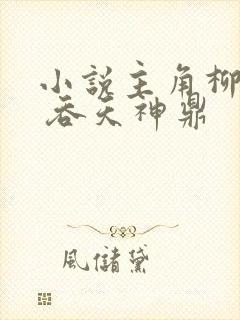 小說主角柳
吞天神鼎
風儲黛